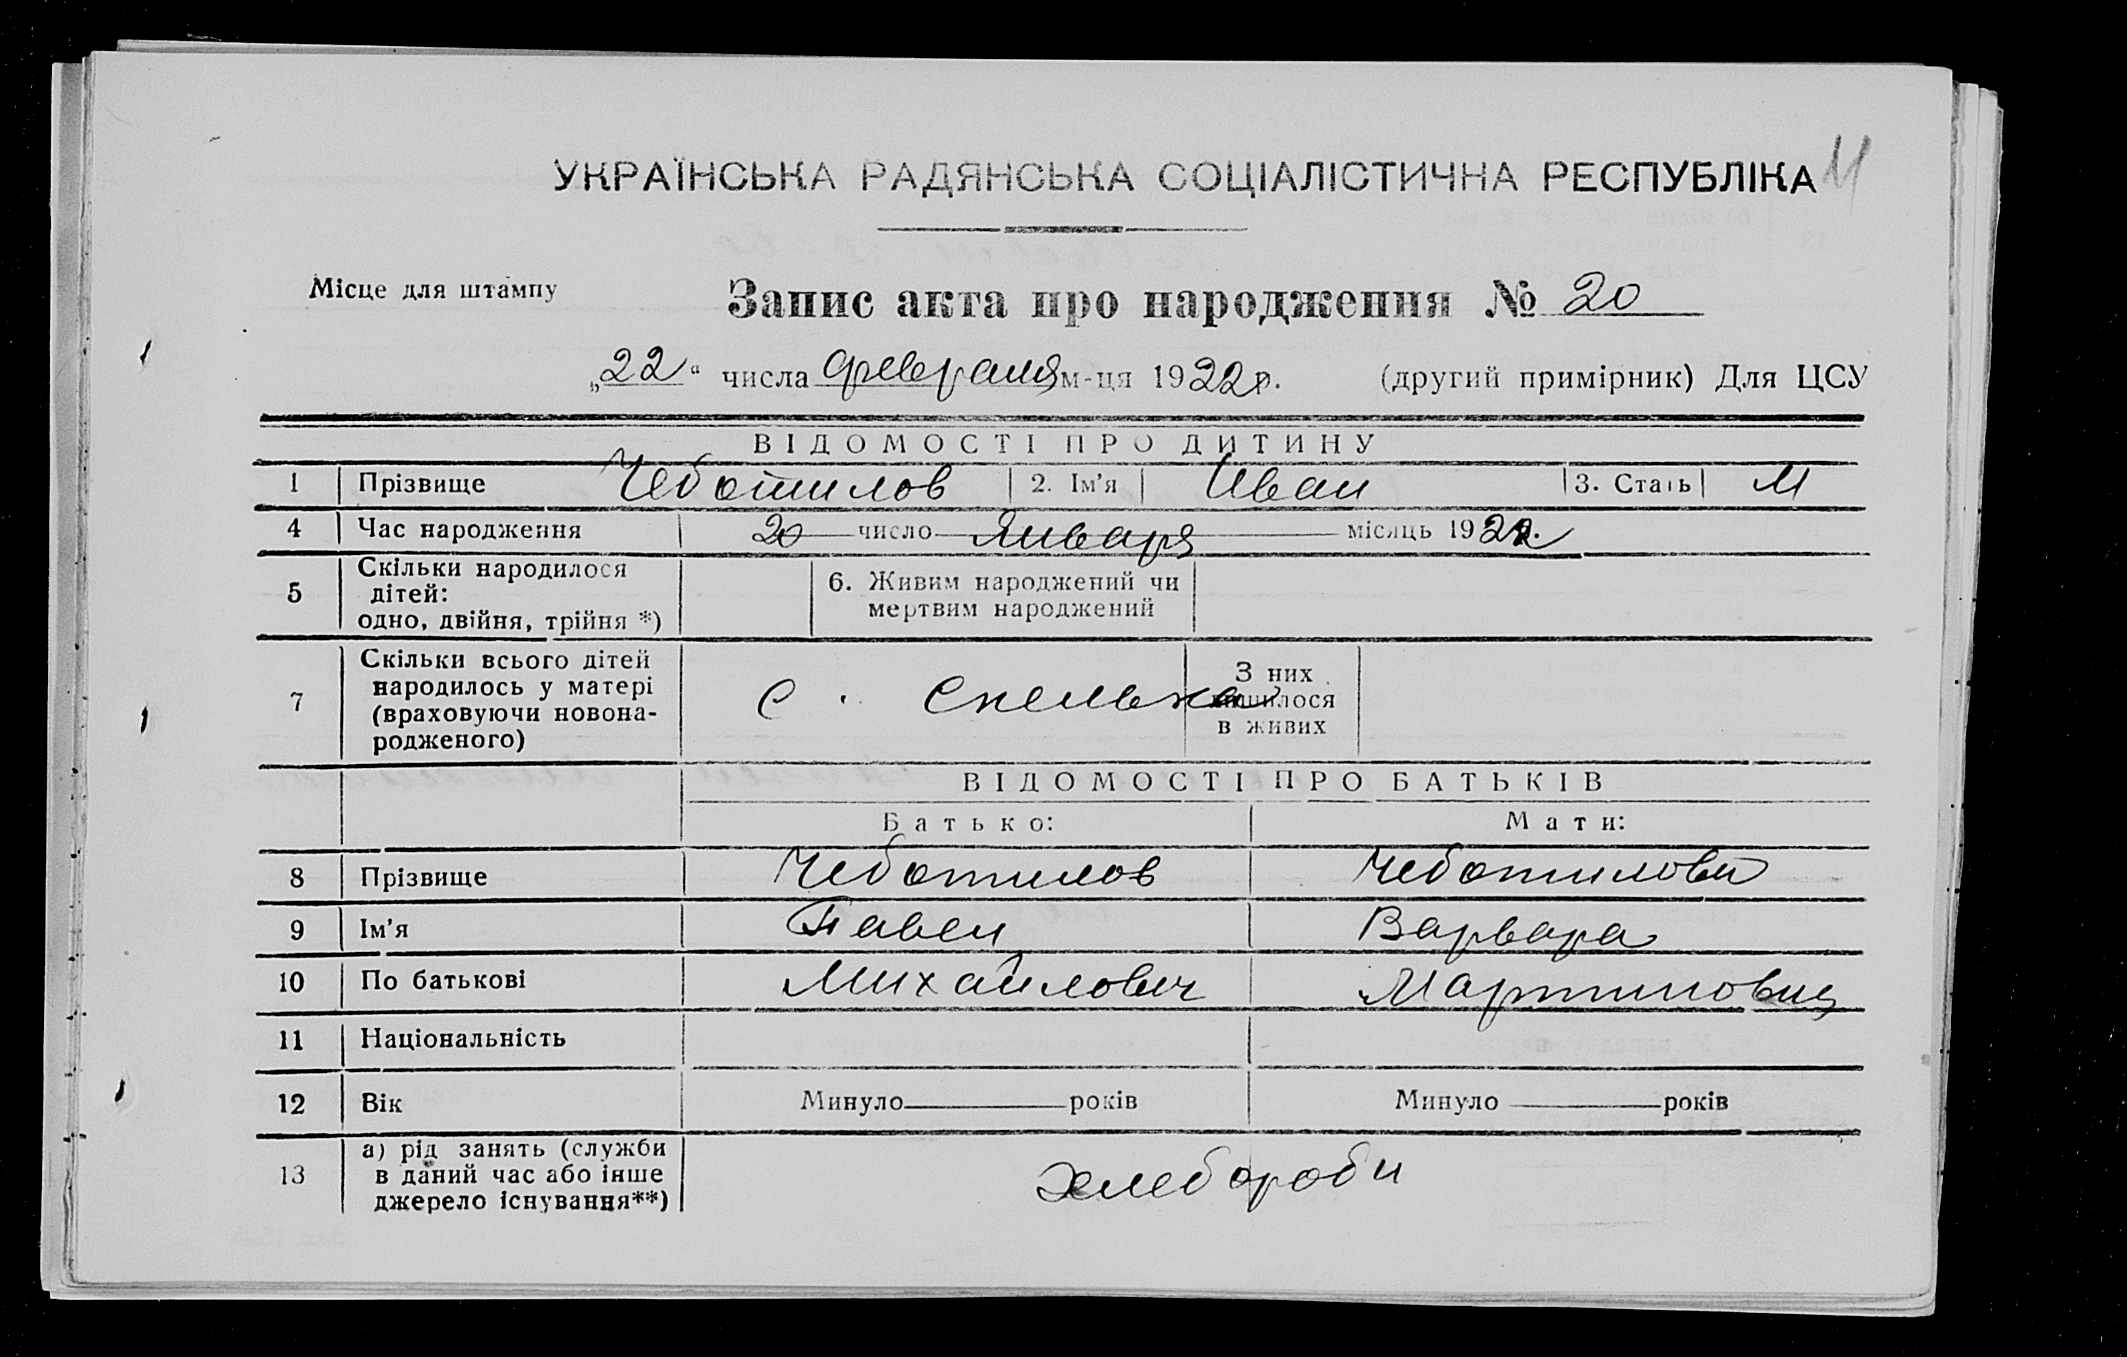 11
УКРАЇНСЬКА РАДЯНСЬКА СОЦІАЛІСТИЧНА РЕСПУБЛІКА
Місце для штампу
Запис акта про народження № 20
„22“ числа февраля м-ця 1922 р. (другий примірник) Для ЦСУ
ВІДОМОСТІ ПРО ДИТИНУ
1 Прізвище Чеботилов 2. Ім’я Иван 3. Стать М
4 Час народження 20 число Января місяць 1922.
5 Скільки народилося дітей: одно, двійня, трійня *) 6. Живим народжений чи мертвим народжений
7 Скільки всього дітей народилось у матері (враховуючи новонародженого) с. З них лишилося в живих
ВІДОМОСТІ ПРО БАТЬКІВ
Батько: Мати:
8 Прізвище Чеботилов Чеботилова
9 Ім’я Павел Варвара
10 По батькові Михайлович Мартиновна
11 Національність
12 Вік Минуло років Минуло років
13 а) рід занять (служби в даний час або інше джерело існування**) хлебороби